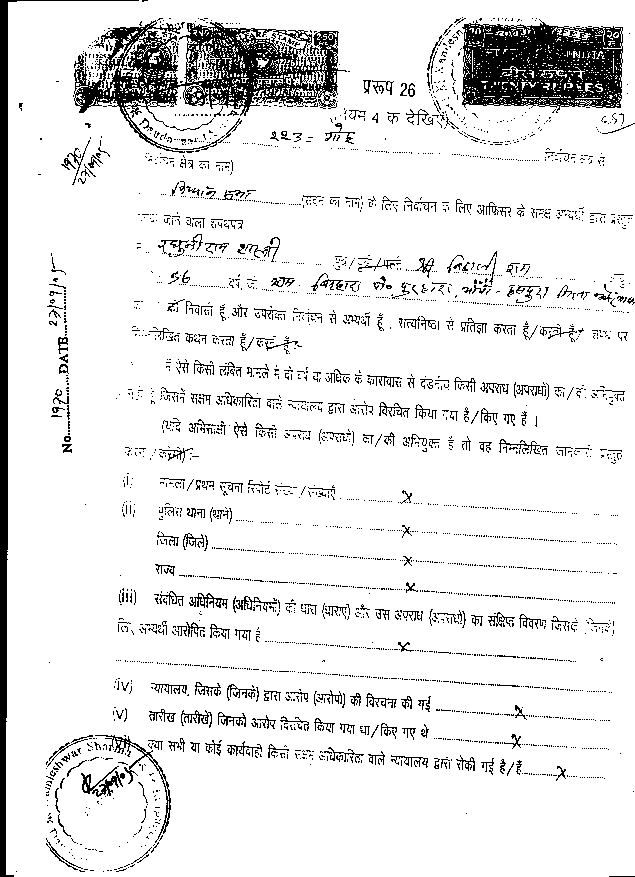 INDIA
TWENTY RUPEES
प्ररूप 26
(नियम 4 क देखिए)
223 - गोह
निर्वाचन क्षेत्र से
(निर्वाचन क्षेत्र का नाम)
विधान सभा (सदन का नाम) के लिए निर्वाचन के लिए आफिसर के समक्ष अभ्यर्थी द्वारा प्रस्तुत
किया जाने वाला शपथपत्र
राम शास्त्री पुत्र/पुत्री/पत्नी श्री राम
56 वर्ष, जो ग्राम
का निवासी हूँ, और उपरोक्त निर्वाचन से अभ्यर्थी हूँ, सत्यनिष्ठा से प्रतिज्ञा करता हूँ/करती हूँ, शपथ पर
निम्नलिखित कथन करता हूँ/करती हूँ:-
मैं ऐसे किसी लंबित मामले में दो वर्ष या अधिक के कारावास से दंडनीय किसी अपराध (अपराधों) का/की अभियुक्त
नहीं हूँ जिसमें सक्षम अधिकारिता वाले न्यायालय द्वारा आरोप विरचित किया गया है/किए गए हैं ।
(यदि अभिसाक्षी ऐसे किसी अपराध (अपराधों) का/की अभियुक्त है तो वह निम्नलिखित जानकारी प्रस्तुत
करेगा/करेगी):-
(i) मामला/प्रथम सूचना रिपोर्ट संख्या/संख्याएँ x
(ii) पुलिस थाना (थाने) x
जिला (जिले) x
राज्य x
(iii) संबंधित अधिनियम (अधिनियमों) की धारा (धाराएं) और उस अपराध (अपराधों) का संक्षिप्त विवरण जिसके (जिनके)
लिए अभ्यर्थी आरोपित किया गया है x
(iv) न्यायालय, जिसके (जिनके) द्वारा आरोप (आरोपों) की विरचना की गई x
(v) तारीख (तारीखें) जिनको आरोप विरचित किया गया था/किए गए थे x
(vi) क्या सभी या कोई कार्यवाही किसी सक्षम अधिकारिता वाले न्यायालय द्वारा रोकी गई है/हैं x
1970
27/09/05
No. 1970 DATE 27/09/05
27/09/05